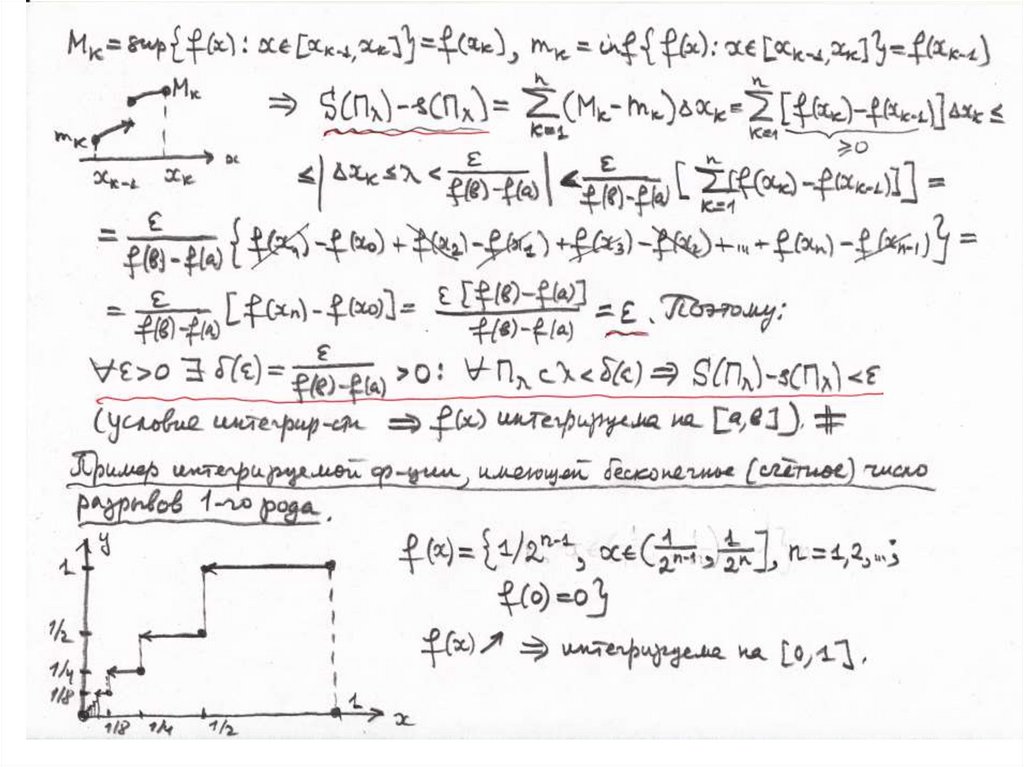 M_k = sup{f(x): x∈[x_{k-1}, x_k]} = f(x_k), m_k = inf{f(x): x∈[x_{k-1}, x_k]} = f(x_{k-1})
M_k
m_k
x_{k-1} x_k x
⇒ S(Π_λ) - s(Π_λ) = Σ_{k=1}^{n} (M_k - m_k)Δx_k = Σ_{k=1}^{n} [f(x_k) - f(x_{k-1})]Δx_k ≤
≥0
≤ | Δx_k ≤ λ < ε/(f(в) - f(a)) | < ε/(f(в) - f(a)) [ Σ_{k=1}^{n} [f(x_k) - f(x_{k-1})] ] =
= ε/(f(в) - f(a)) { f(x_1) - f(x_0) + f(x_2) - f(x_1) + f(x_3) - f(x_2) + ... + f(x_n) - f(x_{n-1}) } =
= ε/(f(в) - f(a)) [f(x_n) - f(x_0)] = ε[f(в) - f(a)]/(f(в) - f(a)) = ε. Поэтому:
∀ε>0 ∃ δ(ε) = ε/(f(в) - f(a)) > 0: ∀ Π_λ с λ < δ(ε) ⇒ S(Π_λ) - s(Π_λ) < ε
(условие интегрир-сти ⇒ f(x) интегрируема на [a, в]). #
Пример интегрируемой ф-ции, имеющей бесконечное (счётное) число
разрывов 1-го рода.
y
1
1/2
1/4
1/8
1/8 1/4 1/2 1 x
f(x) = {1/2^{n-1}, x∈(1/2^{n-1}, 1/2^n], n = 1, 2, ...;
f(0) = 0}
f(x) ↗ ⇒ интегрируема на [0, 1].